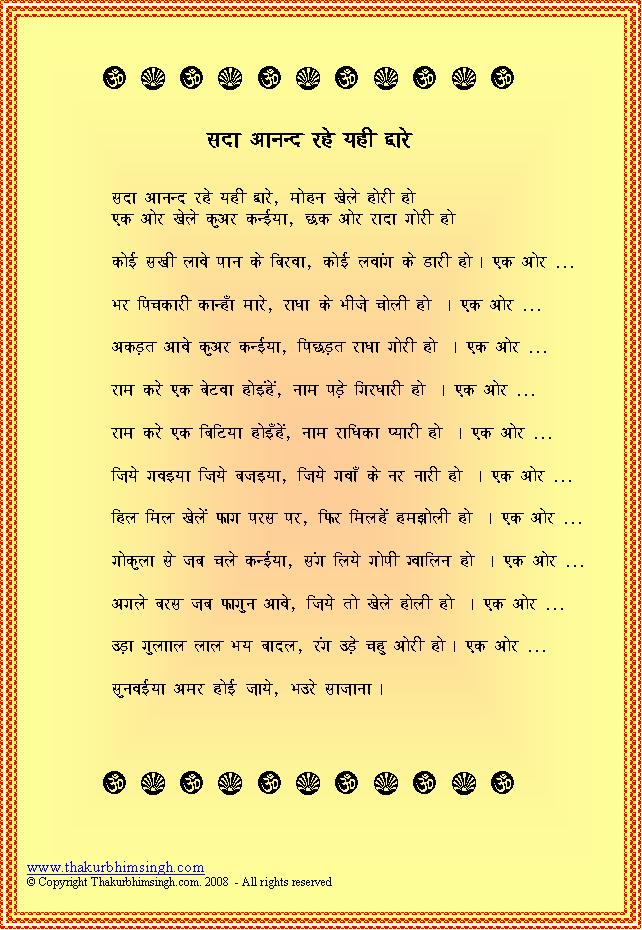 सदा आनन्द रहे यही द्वारे
सदा आनन्द रहे यही द्वारे, मोहन खेले होरी हो
एक ओर खेले कुअर कन्ईया, छक ओर रादा गोरी हो
कोई सखी लावे पान के विरवा, कोई लवांग के डारी हो । एक ओर ...
भर पिचकारी कान्हाँ मारे, राधा के भीजे चोली हो । एक ओर ...
अकड़त आवे कुअर कन्ईया, पिछड़त राधा गोरी हो । एक ओर ...
राम करे एक बेटवा होइंहें, नाम पड़े गिरधारी हो । एक ओर ...
राम करे एक बिटिया होइँहें, नाम राधिका प्यारी हो । एक ओर ...
जिये गवइया जिये बजइया, जिये गवाँ के नर नारी हो । एक ओर ...
हिल मिल खेलें फाग परस पर, फिर मिलहें हमझोली हो । एक ओर ...
गोकुला से जब चले कन्ईया, संग लिये गोपी ग्वालिन हो । एक ओर ...
अगले बरस जब फागुन आवे, जिये तो खेले होली हो । एक ओर ...
उड़ा गुलााल लाल भय बादल, रंग उड़े चहु ओरी हो । एक ओर ...
सुनवईया अमर होई जाये, भउरे साजाना ।
www.thakurbhimsingh.com
© Copyright Thakurbhimsingh.com. 2008 - All rights reserved